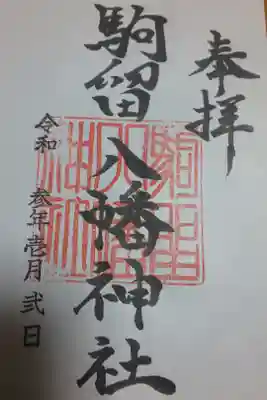 奉拝
駒留八幡神社
令和 参年壱月弐日